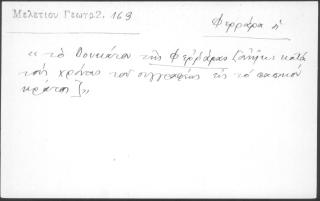 Μελετίου Γεωγρ. 169
Φερράρα ἡ
« τὸ Δουκάτον τῆς Φερράρας [ἀνῆκε κατὰ
τοὺς χρόνους τοῦ συγγραφέως εἰς τὸ παπικὸν
κράτος] »